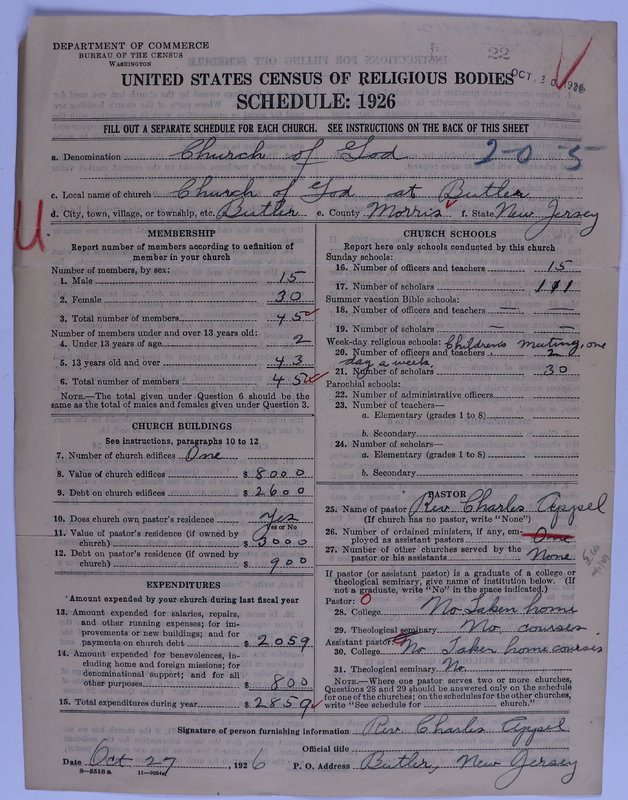 22
DEPARTMENT OF COMMERCE
BUREAU OF THE CENSUS
WASHINGTON
UNITED STATES CENSUS OF RELIGIOUS BODIES
OCT 30 1926
SCHEDULE: 1926
FILL OUT A SEPARATE SCHEDULE FOR EACH CHURCH. SEE INSTRUCTIONS ON THE BACK OF THIS SHEET
a. Denomination Church of God 20-5
c. Local name of church Church of God at Butler
d. City, town, village, or township, etc. Butler e. County Morris f. State New Jersey
U
MEMBERSHIP
Report number of members according to definition of
member in your church
Number of members, by sex:
1. Male 15
2. Female 30
3. Total number of members 45
Number of members under and over 13 years old:
4. Under 13 years of age 2
5. 13 years old and over 43
6. Total number of members 45
NOTE.—The total given under Question 6 should be
same as the total of males and females given under Question 3.
CHURCH BUILDINGS
See instructions, paragraphs 10 to 12
7. Number of church edifices One
8. Value of church edifices $ 8000
9. Debt on church edifices $ 2600
10. Does church own pastor's residence Yes
Yes or No
11. Value of pastor's residence (if owned by
church) $ 3000
12. Debt on pastor's residence (if owned by
church) $ 900
EXPENDITURES
Amount expended by your church during last fiscal year
13. Amount expended for salaries, repairs,
and other running expenses; for im-
provements or new buildings; and for
payments on church debt $ 2059
14. Amount expended for benevolences, in-
cluding home and foreign missions; for
denominational support; and for all
other purposes $ 800
15. Total expenditures during year $ 2859
CHURCH SCHOOLS
Report here only schools conducted by this church
Sunday schools:
16. Number of officers and teachers 15
17. Number of scholars 111
Summer vacation Bible schools:
18. Number of officers and teachers — —
19. Number of scholars — —
Week-day religious schools: Childrens meeting one
20. Number of officers and teachers 2
day a week
21. Number of scholars 30
Parochial schools:
22. Number of administrative officers
23. Number of teachers—
a. Elementary (grades 1 to 8)
b. Secondary
24. Number of scholars—
a. Elementary (grades 1 to 8)
b. Secondary
PASTOR
25. Name of pastor Rev. Charles Appel
(If church has no pastor, write "None")
26. Number of ordained ministers, if any, em-
ployed as assistant pastors One
27. Number of other churches served by the
pastor or his assistants None
If pastor (or assistant pastor) is a graduate of a college or
theological seminary, give name of institution below. (If
not a graduate, write "No" in the space indicated.)
Pastor: 0
28. College No Taken home
29. Theological seminary No courses
Assistant pastor:
30. College No Taken home courses
31. Theological seminary No
NOTE.—Where one pastor serves two or more churches,
Questions 28 and 29 should be answered only on the schedule
for one of the churches; on the schedules for the other churches,
write "See schedule for church."
Signature of person furnishing information Rev. Charles Appel
Official title
Date Oct 27, 1926 P. O. Address Butler, New Jersey
8—5518a